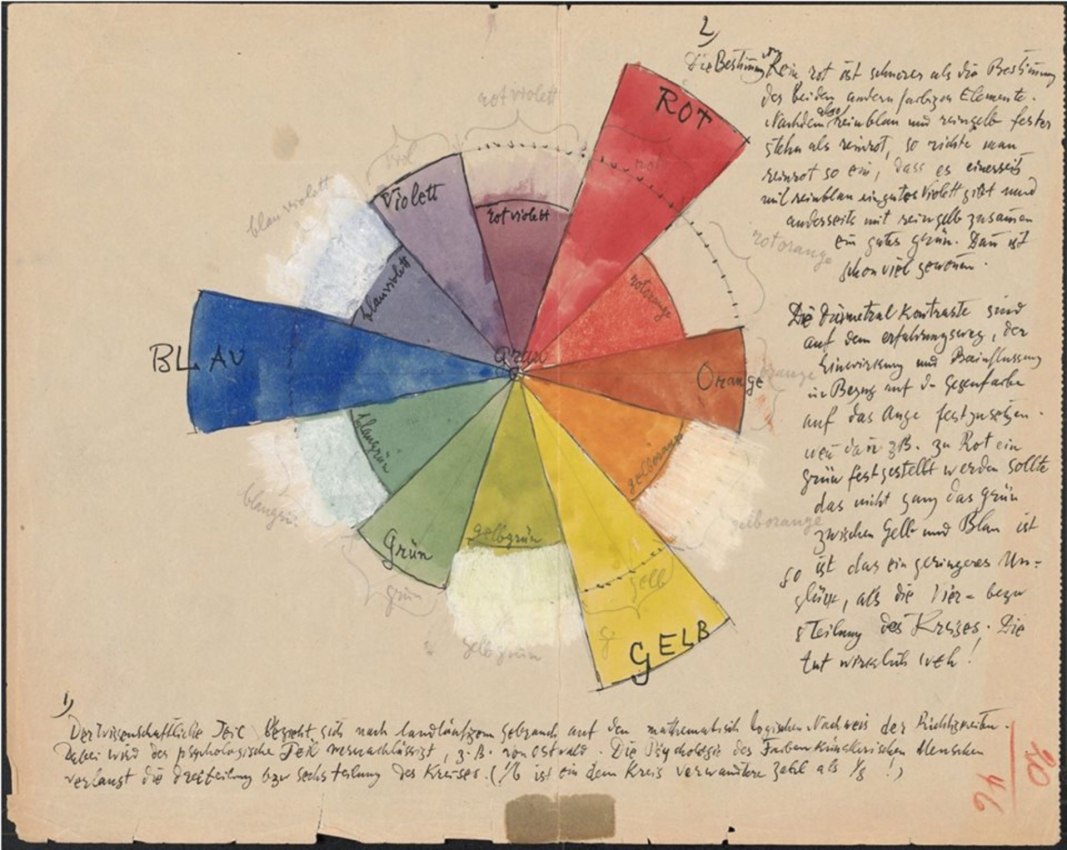 2)
Die Bestimmung von Rein rot ist schwerer als die Bestimmung
der beiden andern farbigen Elemente.
Nachdem also reinblau und reingelb fester
stehn als reinrot, so richte man
reinrot so ein, dass es einerseits
mit reinblau ein gutes Violett gibt und
anderseits mit reingelb zusammen
ein gutes
schon viel gewonnen.
Die diametral Kontraste sind
auf dem erfahrungsweg, der
Einwirkung und Beinflussung
in Bezug auf d. Gegenfarbe
auf das Auge festzusetzen.
wenn dann z.B. zu Rot ein
grün festgestellt werden sollte
das nicht ganz das grün
zwischen Gelb und Blau ist
so ist das ein geringeres Un-
glück, als die Vier- bezw
8Teilung des Kreises. Die
tut wirklich weh!
rotviolett
viol
blauviolett
Violett
rotviolett
ROT
rot
rotorange
rotorange
blauviolett
BLAU
Grau
Orange
orange
blaugrün
gelborange
gelborange
blaugrün
Grün
gelbgrün
grün
gelb
GELB
gelbgrün
1)
Der wissenschaftliche Teil bezieht sich nach landläufigem gebrauch auf den mathematisch logischen Nachweis der Richtigkeiten.
Dabei wird der psychologische Teil vernachlässigt, z.B. von Ostwald. Die Psychologie des Farbenkünstlerischen Menschen
verlangt die Dreiteilung bzw Sechsteilung des Kreises. (1/6 ist ein dem Kreis verwandtere Zahl als 1/8 !)